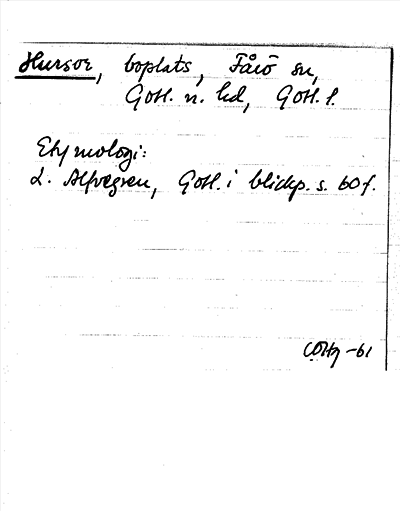 Hursor, boplats, Fårö sn,
Gotl. n. hd, Gotl. l.
Etymologi:
L. Alfvegren, Gotl. i blickp. s. 60 f.
-61